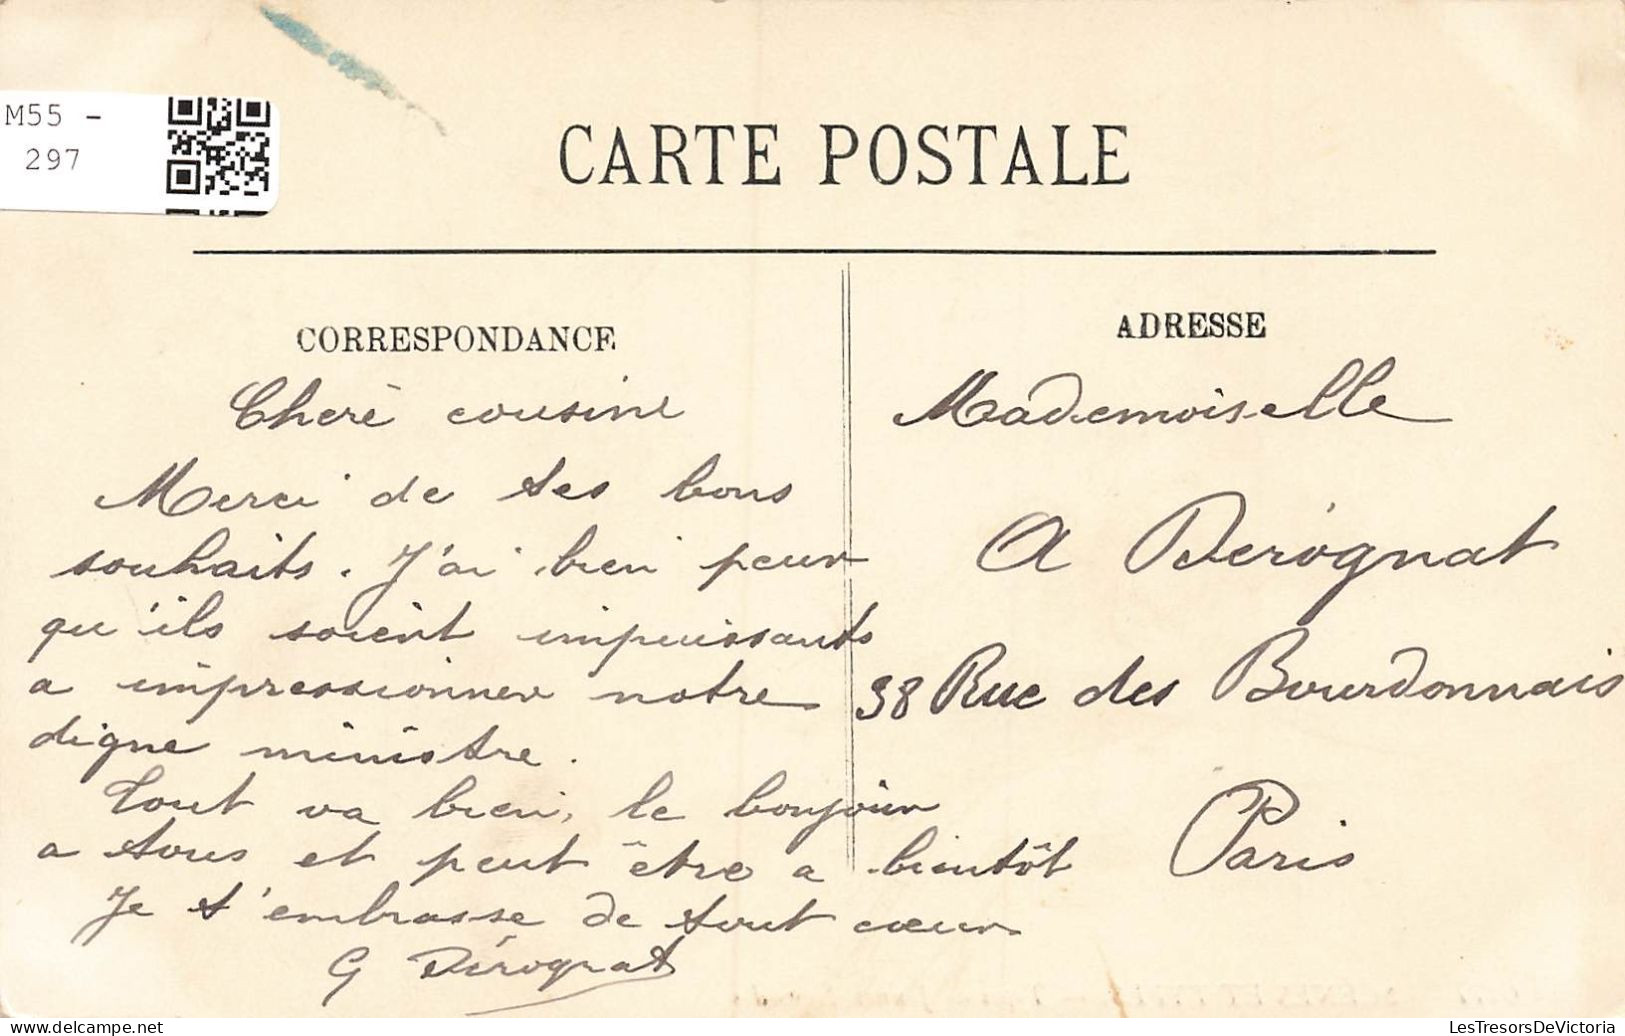 M55 -
297
CARTE POSTALE
CORRESPONDANCE
Cherè cousine
Merci de tes bons
souhaits. J'ai bien peur
qu'ils soient impuissants
a impressionner notre
digne ministre.
Tout va bien, le bonjour
a tous et peut être a bientôt
Je t'embrasse de tout cœur
G Dérognat
ADRESSE
Mademoiselle
A Derognat
38 Rue des Bourdonnais
Paris
delcampe.net
LesTresorsDeVictoria